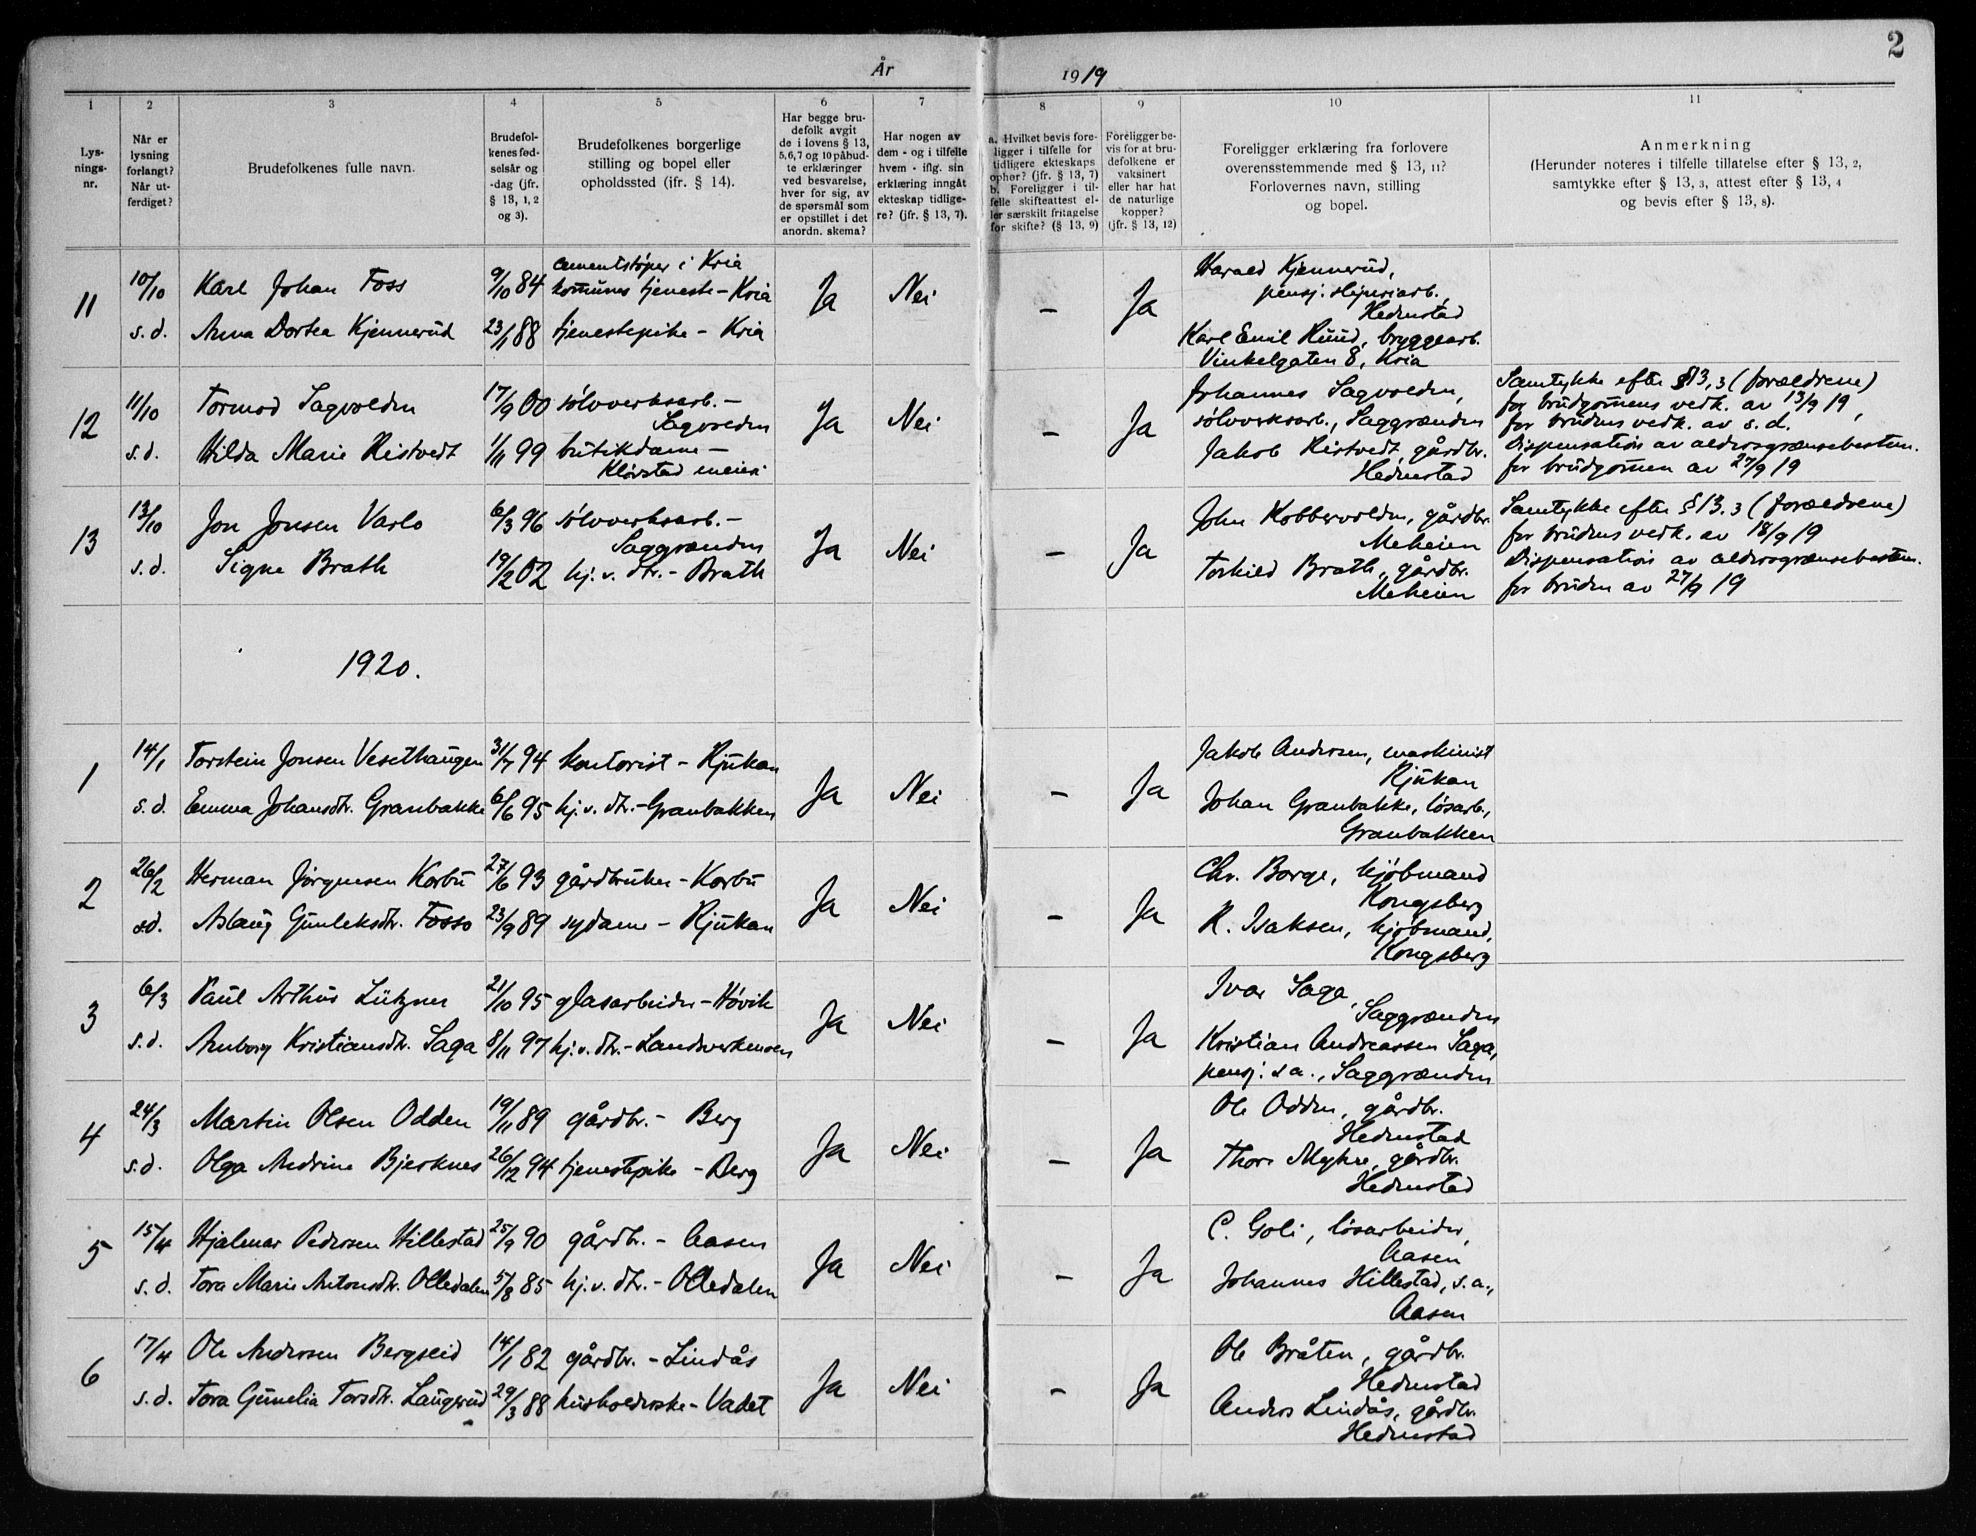 2
År 1919
1 2 3 4 5 6 7 8 9 10 11
Lys-
nings-
nr.
Når er
lysning
forlangt?
Når ut-
ferdiget?
Brudefolkenes fulle navn.
Brudefol-
kenes fød-
selsår og
-dag (jfr.
§ 13, 1, 2
og 3).
Brudefolkenes borgerlige
stilling og bopel eller
opholdssted (ifr. § 14).
Har begge bru-
defolk avgit
de i lovens § 13,
5,6,7 og 10 påbud-
te erklæringer
ved besvarelse,
hver for sig, av
de spørsmål som
er opstillet i det
anordn. skema?
Har nogen av
dem - og i tilfelle
hvem - iflg. sin
erklæring inngåt
ekteskap tidlige-
re? (jfr. § 13, 7).
a. Hvilket bevis fore-
ligger i tilfelle for
tidligere ekteskaps
ophør? (jfr. § 13, 7)
b. Foreligger i til-
felle skifteattest el-
ler særskilt fritagelse
for skifte? (§ 13, 9)
Foreligger be-
vis for at bru-
defolkene er
vaksinert
eller har hat
de naturlige
kopper?
(jfr. § 13, 12)
Foreligger erklæring fra forlovere
overensstemmende med § 13, 11?
Forlovernes navn, stilling
og bopel.
Anmerkning
(Herunder noteres i tilfelle tillatelse efter § 13, 2,
samtykke efter § 13, 3, attest efter § 13, 4
og bevis efter § 13, 8).
11
10/10 Karl Johan Foss 9/10 84 cementstøper i Kria
komunes tjeneste - Kria
s. d. Anna Dortea Kjennerud 23/1 88 tjenestepike - Kria
Ja Nei - Ja
Harald Kjennerud,
Hedenstad
Karl Emil Ruud, bryggearb.
Vinkelgaten 8, Kria
12
11/10 Tormod Sagvolden 17/9 00 sølvverksarb. -
Sagvolden
s. d. Hilda Marie Ristvedt 1/11 99 butikdame -
Klørstad meieri
Ja Nei - Ja
Johannes Sagvolden,
sølvverksarb., Saggrænden
Jakob Ristvedt, gårdbr.
Hedenstad
Samtykke efter § 13, 3 (forældrene)
for brudgomens vedk. av 13/9 19,
for brudens vedk. av s. d.
Dispensation av aldersgrænsebestem.
for brudgomen av 27/9 19
13
13/10 Jon Jonsen Varlo 6/3 96 sølvverksarb. -
Saggrænden
s. d. Signe Brath 19/2 02 hj. v. dtr. - Brath
Ja Nei - Ja
John Kobbervolden, gårdbr.
Meheien
Torkild Brath, gårdbr.
Meheien
Samtykke efter § 13, 3 (forældrene)
for brudens vedk. av 18/9 19
Dispensation av aldersgrænsebestem.
for bruden av 27/9 19
1920.
1
14/1 Torstein Jonsen Vesethaugen 31/7 94 kontorist - Rjukan
s. d. Emma Johansdtr. Granbakke 6/6 95 hj. v. dtr. - Granbakken
Ja Nei - Ja
Jakob Andersen, maskinist
Rjukan
Johan Granbakke, løsarb.,
Granbakken
2
26/2 Herman Jørgensen Korbu 27/6 93 gårdbruker - Korbu
s.d. Aslaug Gunleksdtr. Fosso 23/9 89 sydame - Rjukan
Ja Nei - Ja
Chr. Borge, kjøbmand
Kongsberg
R. Isaksen, kjøbmand,
Kongsberg
3
6/3 Paul Arthur Lützner 21/10 95 glasarbeider - Høvik
s. d. Anborg Kristiansdtr. Saga 8/11 97 hj. v. dtr. - Landsverkmoen
Ja Nei - Ja
Ivar Saga,
Saggrænden
Kristian Andreassen Saga,
pensj. s a., Saggrænden
4
24/3 Martin Olsen Odden 19/11 89 gårdbr. - Berg
s. d. Olga Andrine Bjerknes 26/12 94 tjenestepike - Berg
Ja Nei - Ja
Ole Odden, gårdbr.
Hedenstad
Thore Myhre, gårdbr.
Hedenstad
5
15/4 Hjalmar Pedersen Hillestad 25/9 90 gårdbr. - Aasen
s. d. Tora Marie Antonsdtr. Olledalen 5/8 85 hj. v. dtr. - Olledalen
Ja Nei - Ja
C. Goli, løsarbeider,
Aasen
Johannes Hillestad, s. a.,
Aasen
6
17/4 Ole Andersen Bergseid 14/1 82 gårdbr. - Lindås
s. d. Tora Gunelia Torsdtr. Laugerud 29/3 88 husholderske - Vadet
Ja Nei - Ja
Ole Bråten, gårdbr.
Hedenstad
Anders Lindås, gårdbr.
Hedenstad